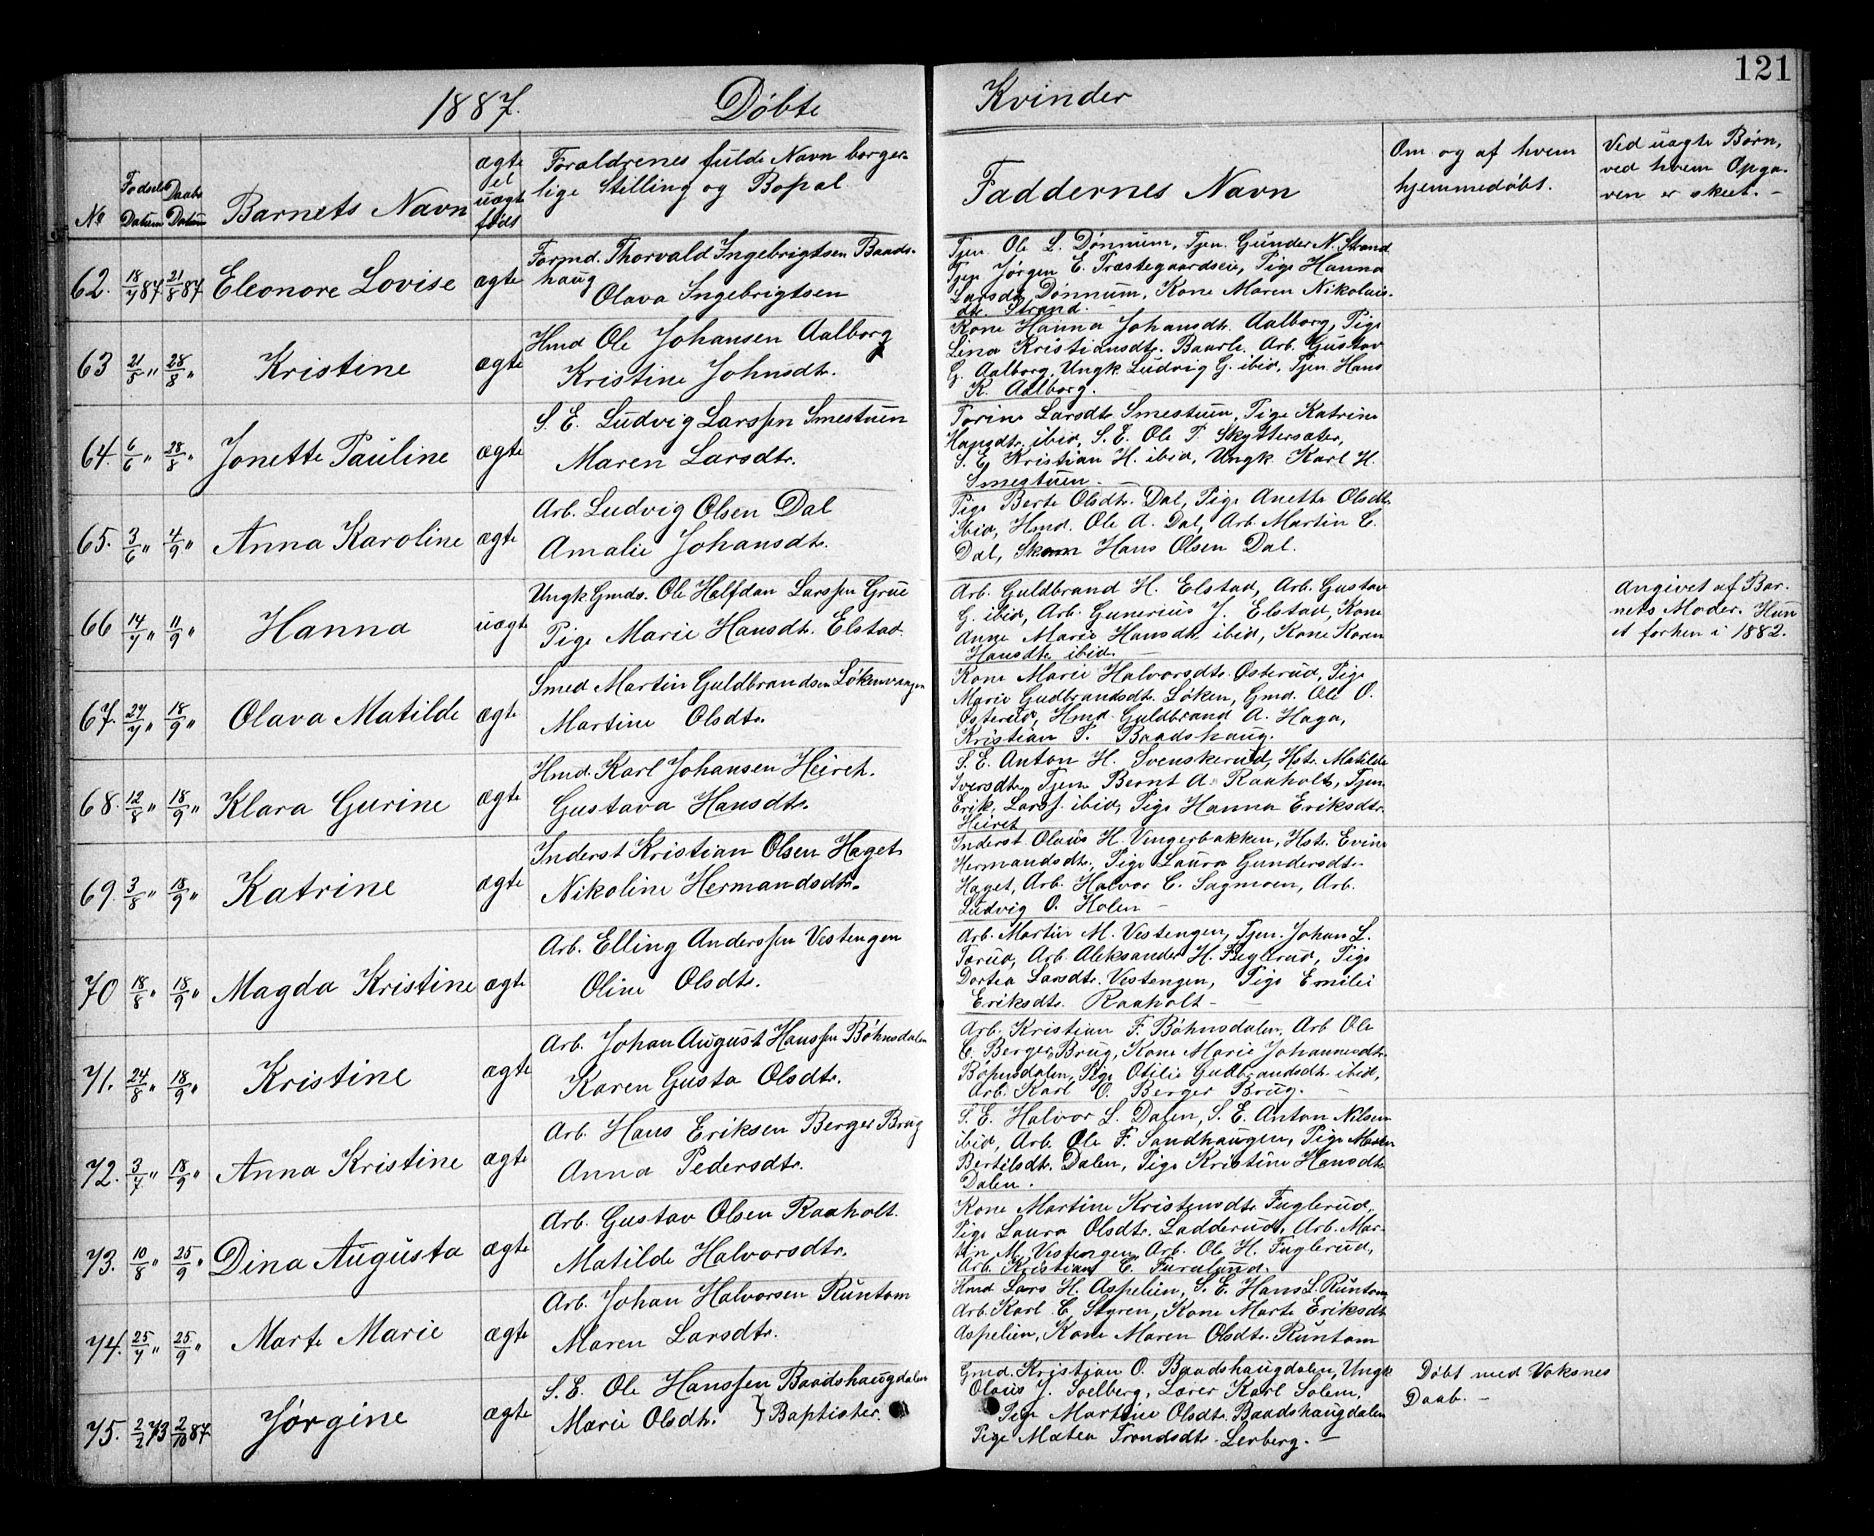 121
1887. Døbte Kvinder
No
Fødsels Datum
Daabs Datum
Barnets Navn
ægte el uægte født
Forældrenes fulde Navn borger-
lige Stilling og Bopæl
Faddernes Navn
Om og af hvem
hjemmedøbt.
Ved uægte Børn,
ved hvem Opga-
ven er skeet. -
62. 18/7 87 21/8 87 Eleonore Lovise ægte
Formd. Thorvald Ingebrigtsen Baads-
haug
Olava Ingebrigtsen
Tjen. Ole L. Dønnum, Tjen. Gunder N. Strand
Tjen Jørgen E. Præstegaardseie, Pige Hanna
Larsdtr Dønnum, Kone Maren Nikolais-
dtr. Strand.
63 21/5 " 28/8 " Kristine ægte
Hmd Ole Johansen Aalborg
Kristine Johnsdtr.
Kone Hanna Johansdtr. Aalborg, Pige
Lina Kristiansdtr. Arb. Gustav
G. Aalborg, Ungk. Ludvig G. ibid, Tjen. Hans
K. Aalborg.
64. 6/6 " 28/8 " Jonette Pauline ægte
S. E. Ludvig Larssen Smestuen
Maren Larsdtr.
Larsdtr Smestuen, Pige Katrine
Hansdtr. ibid, S. E. Ole P. Skyttersæter,
S. E. Kristian H. ibid, Ungk Karl H.
Smestuen. -
65. 3/6 " 4/9 " Anna Karoline ægte
Arb. Ludvig Olsen Dal
Amalie Johansdtr.
Pige Berte Olsdtr. Dal, Pige Anette Olsdtr
ibid, Hmd. Ole A. Dal, Arb. Martin E.
Dal, Skom Hans Olsen Dal.
66 14/7 " 11/9 " Hanna uægte
Ungk Gmds. Ole Halfdan Larssen Grue
Pige Marie Hansdtr. Elstad.
Arb. Guldbrand H. Elstad, Arb. Gustav
G. ibid, Arb. Gunerius J. Elstad, Kone
Anne Marie Hansdtr. ibid, Kone Karen
Hansdtr ibid. -
Angivet af Bar-
nets Moder. Hun
et forhen i 1882.
67. 24/7 " 18/9 " Olava Matilde ægte
Smed Martin Guldbrandsen Løkenvangen
Martine Olsdtr.
Kone Marie Halvorsdtr. Østerud, Pige
Marie Gudbrandsdtr. Løken, Gmd. Ole O.
Østerud, Hmd. Guldbrand A. Haga,
Kristian P. Baadshaug.
68. 12/8 " 18/9 " Klara Gurine ægte
Hmd. Karl Johansen Heiret.
Gustava Hansdtr.
S. E. Anton H. Svenskerud, Hstr. Matilde
Iversdtr, Tjen Bernt A. Raaholt, Tjen.
Erik, Larsf. ibid, Pige Hanna Eriksdtr.
Heiret
69. 3/8 " 18/9 " Katrine ægte
Inderst Kristian Olsen Haget
Nikoline Hermandsdtr.
Inderst Olaus H. Vingerbakken, Hstr. Evine
Hermandsdtr. Pige Laura Gundersdtr.
Haget, Arb. Halvor C. Sagmoen, Arb.
Ludvig O. Holen -
70 18/8 " 18/9 " Magda Kristine ægte
Arb. Elling Anderssen Vestengen
Oline Olsdtr.
Arb. Martin M. Vestengen, Tjen. Johan L.
Tærud, Arb Aleksander H. Fuglerud, Pige
Dortea Larsdtr. Vestengen, Pige Emilie
Eriksdtr. Raaholt -
71. 24/8 " 18/9 " Kristine ægte
Arb. Johan August Hanssen Bøhnsdalen
Karen Gusta Olsdtr.
Arb. Kristian F. Bøhnsdalen, Arb Ole
C. Berger Brug, Kone Marie Johannesdtr.
Bøhnsdalen, Pige Otilie Guldbrandsdtr. ibid,
Arb. Karl O. Berger Brug. -
72. 3/7 " 18/9 " Anna Kristine ægte
Arb. Hans Eriksen Berger Brug
Anna Pedersdtr.
S. E. Halvor L. Dalen, S. E. Anton Nilsen
ibid, Arb. Ole F. Sandhaugen, Pige Maren
Bertilsdtr. Dalen, Pige Kristine Hansdtr
Dalen.
73. 10/8 " 25/9 " Dina Augusta ægte
Arb. Gustav Olsen Raaholt.
Matilde Halvorsdtr.
Kone Martine Kristensdtr. Fuglerud,
Pige Laura Olsdtr. Ladderud, Arb. Mar-
tin M. Vestengen, Arb. Ole H. Fuglerud,
Arb. Kristian E. Furulund.
74. 25/7 " 25/9 " Marte Marie ægte
Arb. Johan Halvorsen Runtom
Maren Larsdtr.
Hmd Lars H. Aspelien, S. E. Hans L. Runtom
Arb. Karl C. Styren, Kone Marte Eriksdtr
Aspelien, Kone Maren Olsdtr. Runtom
75. 2/2 73 2/10 87 Jørgine ægte
S. E. Ole Hanssen Baadshaugdalen
Marie Olsdtr. } Baptister.
Gmd. Kristian O. Baadshaugdalen, Ungk
Olaus J. Soelberg, Lærer Karl Solem,
Pige Martine Olsdtr. Baadshaugdalen
Pige Matea Trondsdtr. Lerberg. -
Døbt med Voksnes
Daab. -